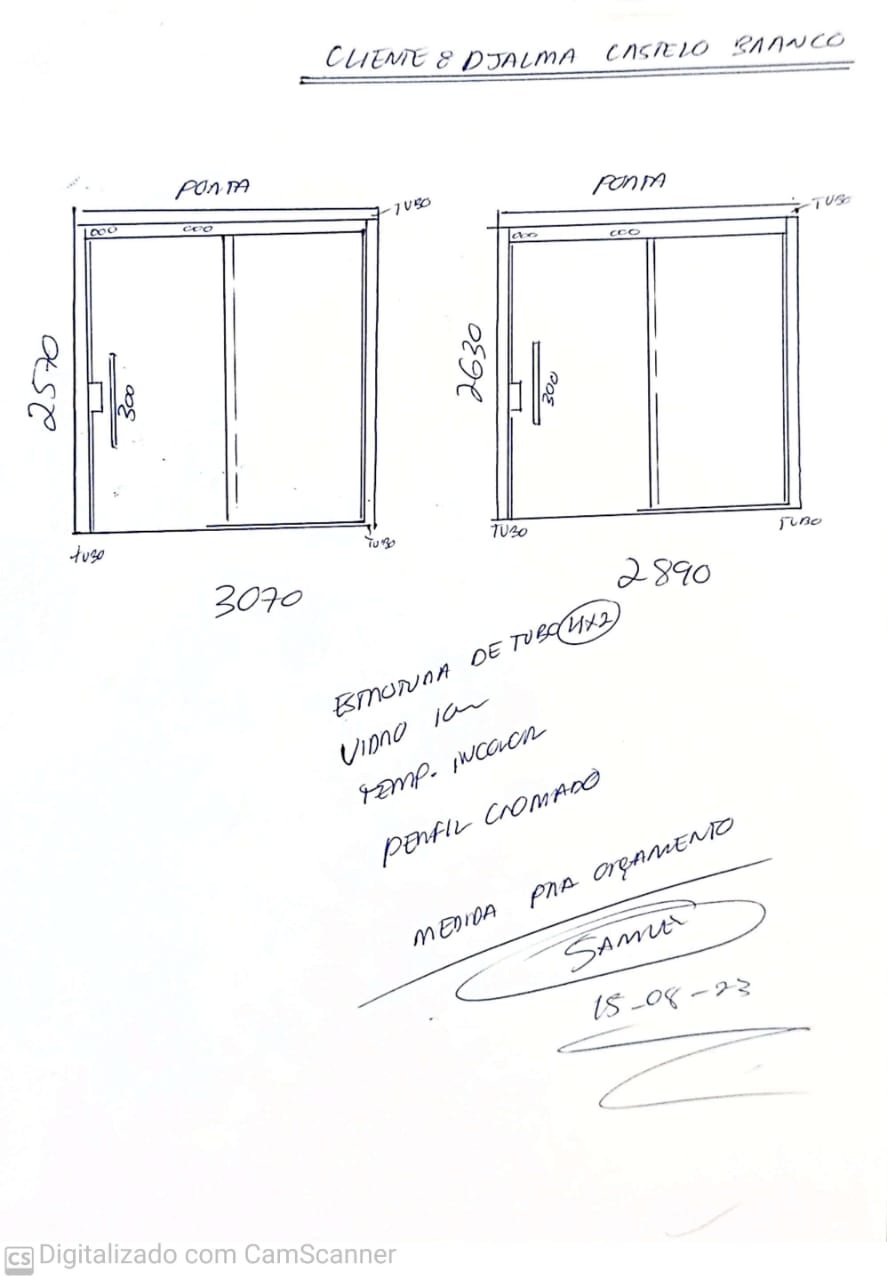 CLIENTE: DJALMA CASTELO BRANCO
PORTA
TUBO
2570
300
TUBO
TUBO
3070
PORTA
TUBO
2630
300
TUBO
TUBO
2890
ESTRUTURA DE TUBO 4x2
VIDRO 10m
TEMP. INCOLOR
PERFIL CROMADO
MEDIDA PRA ORÇAMENTO
SAMUEL
15-08-23
CS Digitalizado com CamScanner